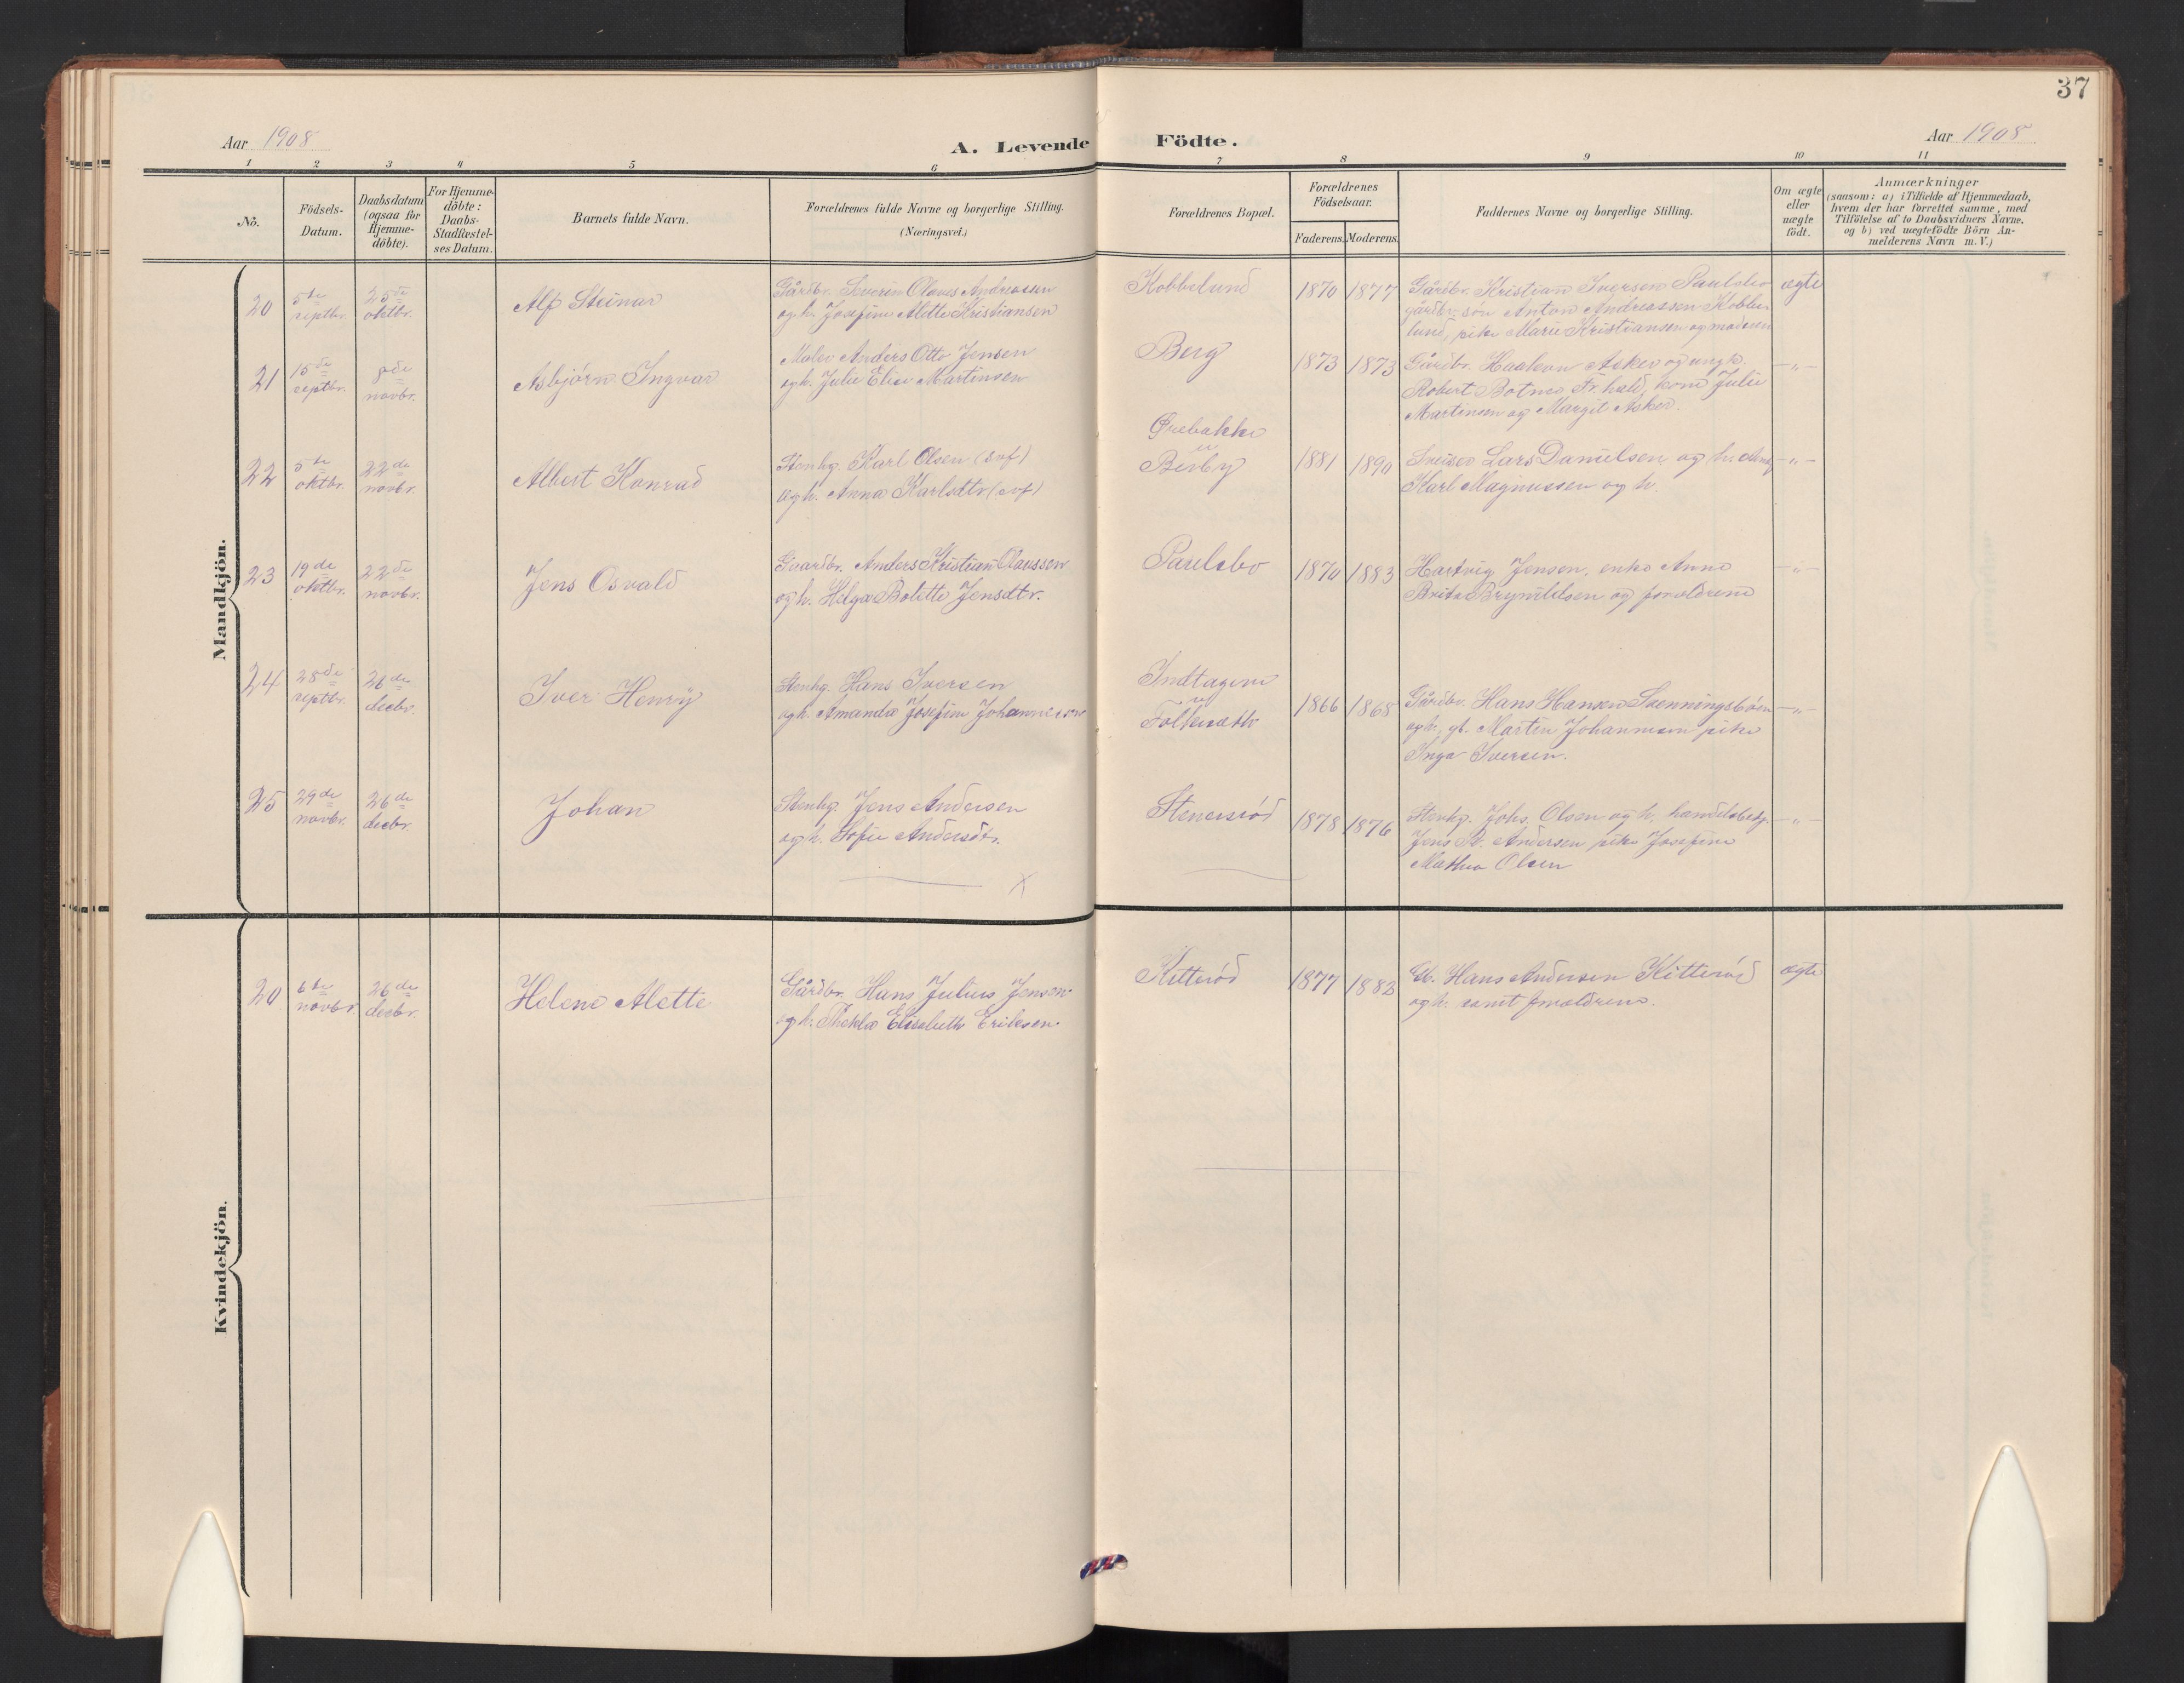 37
Aar 1908
A. Levende Födte.
Aar 1908
1 2 3 4 5 6 7 8 9 10 11
No.
Födsels-
Datum.
Daabsdatum
(ogsaa for
Hjemme-
döbte).
For Hjemme-
döbte:
Daabs-
Stadfæstel-
ses Datum.
Barnets fulde Navn.
Forældrenes fulde Navne og borgerlige Stilling.
(Næringsvei.)
Forældrenes Bopæl.
Forældrenes
Födselsaar.
Faderens. Moderens.
Faddernes Navne og borgerlige Stilling.
Om ægte
eller
uægte
födt.
Anmærkninger
(saasom: a) i Tilfælde af Hjemmedaab,
hvem der har forrettet samme, med
Tilföielse af to Daabsvidners Navne,
og b) ved uægtefödte Börn An-
melderens Navn m. V.)
Mandkjön.
20
5te
septbr.
25de
oktbr.
Alf Steinar
Gårdbr. Severin Olaves Andreassen
og h. Josefine Alette Kristiansen
Kobbelund
1870 1877
Gårdbr. Kristian Iversen Paulsbo
gårdbr.søn Anton Andreassen Kobbe-
lund, pike Marie Kristiansen og moderen
ægte
21
15de
septbr.
8de
novbr.
Asbjörn Ingvar
Maler Anders Otto Jensen
og h. Julie Elise Martinsen
Berg
1873 1873
Gårdbr. Haakon Asker og ungk.
Robert Botner Fr.hald, kone Julie
Martinsen og Margit Asker.
—„—
22
5te
oktbr.
22de
novbr.
Albert Konrad
Stenhg. Karl Olsen
og h. Anna Karlsdtr
Ørebakke
u
Berby
1881 1890
Sveiser Lars Danielsen og h.
Karl Magnussen og h.
—„—
23
19de
oktbr.
22de
novbr.
Jens Osvald
Gaardbr. Anders Kristian Olaussen
og h. Helga Bolette Jensdtr.
Paulsbo
1870 1883
Hartvig Jensen, enke Anne
Brita Bryntelsen og forældrene
—„—
24
28de
septbr.
26de
decbr.
Iver Henry
Stenhg. Hans Iversen
og h. Amanda Josefine Johannesen
Indtagene
u
Folkesæth
1866 1868
Gårdbr. Hans Hansen Svenningsbøen
og h., gt. Martin Johannesen pike
Inga Iversen.
—„—
25
29de
novbr.
26de
decbr.
Johan
Stenhg. Jens Andersen
og h. Sofie Andersdtr.
Stenersrød
1878 1876
Stenhg. Johs. Olsen og h. handelsbetj.
Jens St. Andersen pike Josefine
Mathea Olsen
—„—
X
Kvindekjön.
20
6te
novbr.
26de
decbr.
Helene Alette
Gårdbr. Hans Julius Jensen
og h. Thekla Elisabeth Eriksen.
Kitterød
1877 1883
Gb. Hans Andersen Kitterød
og h. samt forældrene.
ægte